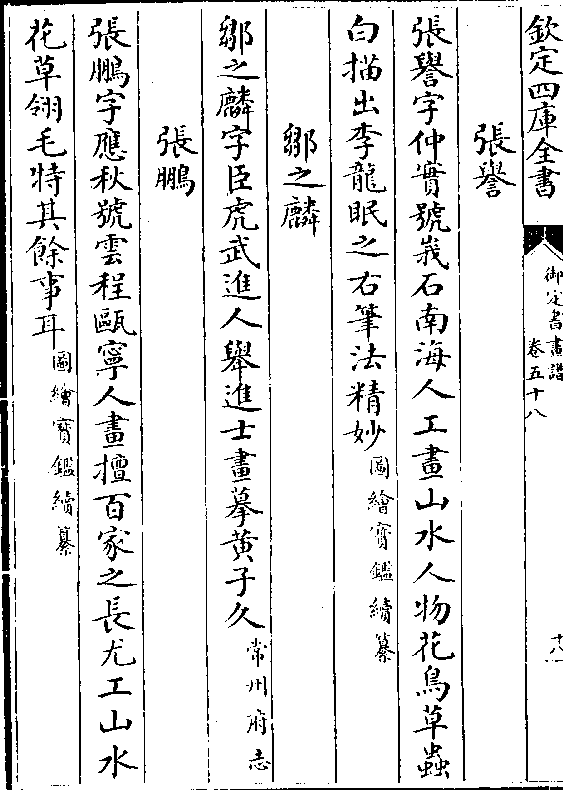 欽定四庫全書
御定書畫譜
卷五十八
十八
張譽
張譽字仲實號峩石南海人工畫山水人物花鳥草蟲
白描出李龍眠之右筆法精妙圖繪寳鑑續纂
鄒之麟
鄒之麟字臣虎武進人舉進士畫摹黄子久常州府志
張鵬
張鵬字應秋號雲程甌寧人畫擅百家之長尤工山水
花草翎毛特其餘事耳圖繪寳鑑續纂